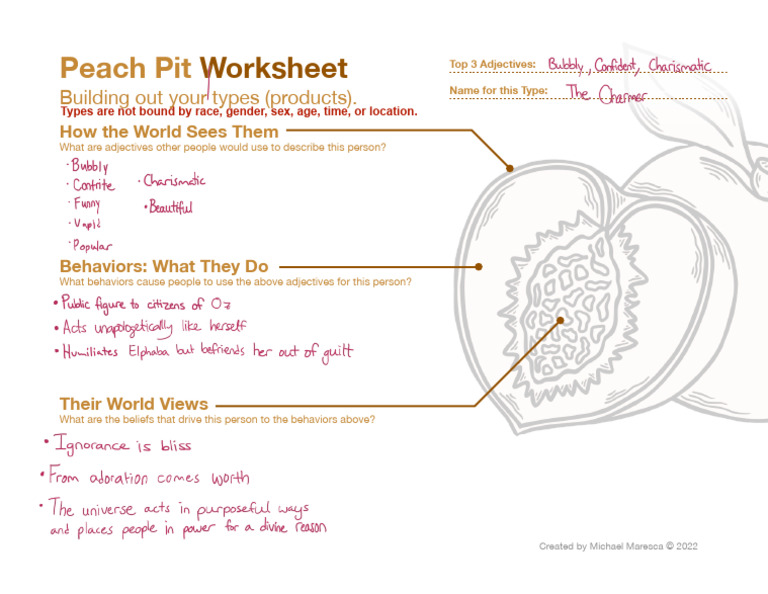 Peach Pit Worksheet
Building out your types (products).
Types are not bound by race, gender, sex, age, time, or location.
Top 3 Adjectives: Bubbly, Confident, Charismatic
Name for this Type: The Charmer
How the World Sees Them
What are adjectives other people would use to describe this person?
· Bubbly
· Contrite
· Funny
· Vapid
· Popular
· Charismatic
· Beautiful
Behaviors: What They Do
What behaviors cause people to use the above adjectives for this person?
• Public figure to citizens of Oz
• Acts unapologetically like herself
• Humiliates Elphaba but befriends her out of guilt
Their World Views
What are the beliefs that drive this person to the behaviors above?
• Ignorance is bliss
• From adoration comes worth
• The universe acts in purposeful ways
and places people in power for a divine reason
Created by Michael Maresca © 2022